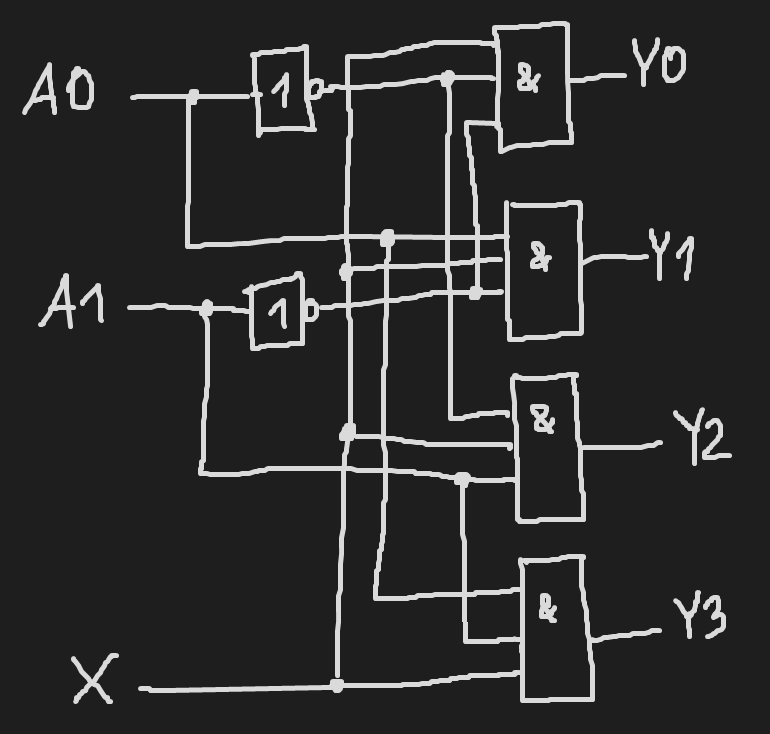 A0
1
&
Y0
&
Y1
A1
1
&
Y2
&
Y3
X